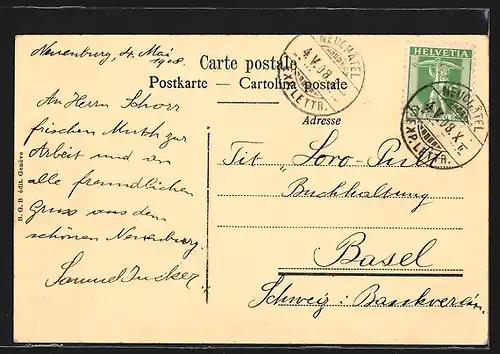 Neuenburg, 4. Mai
1908.
Carte postale
Postkarte — Cartolina postale
Adresse
An Herrn Schorr
frischen Muth zur
Arbeit und an
alle freundlichen
Gruss aus dem
schönen Neuenburg.
Samuel Jucker
B. G. B édit. Genève
HELVETIA
NEUCHATEL
4.V.08.
EXP. LETTR.
NEUCHATEL
4.V.08.X
EXP. LETTR.
Tit. Loro-Pult
Buchhaltung
Basel
Schweiz: Bankverein.